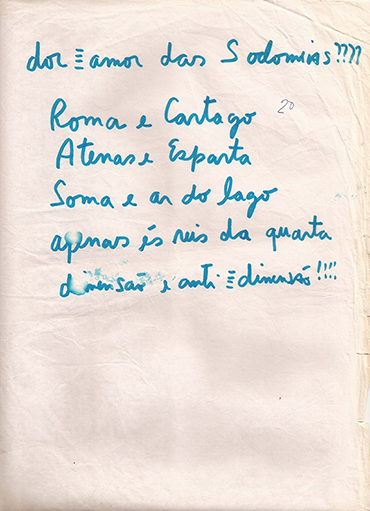 dor ≡ amor das Sodomias????
Roma e Cartago 20
Atenas e Esparta
Soma e ar do lago
apenas és reis da quarta
dimensão e anti ≡ dimensão!!!!